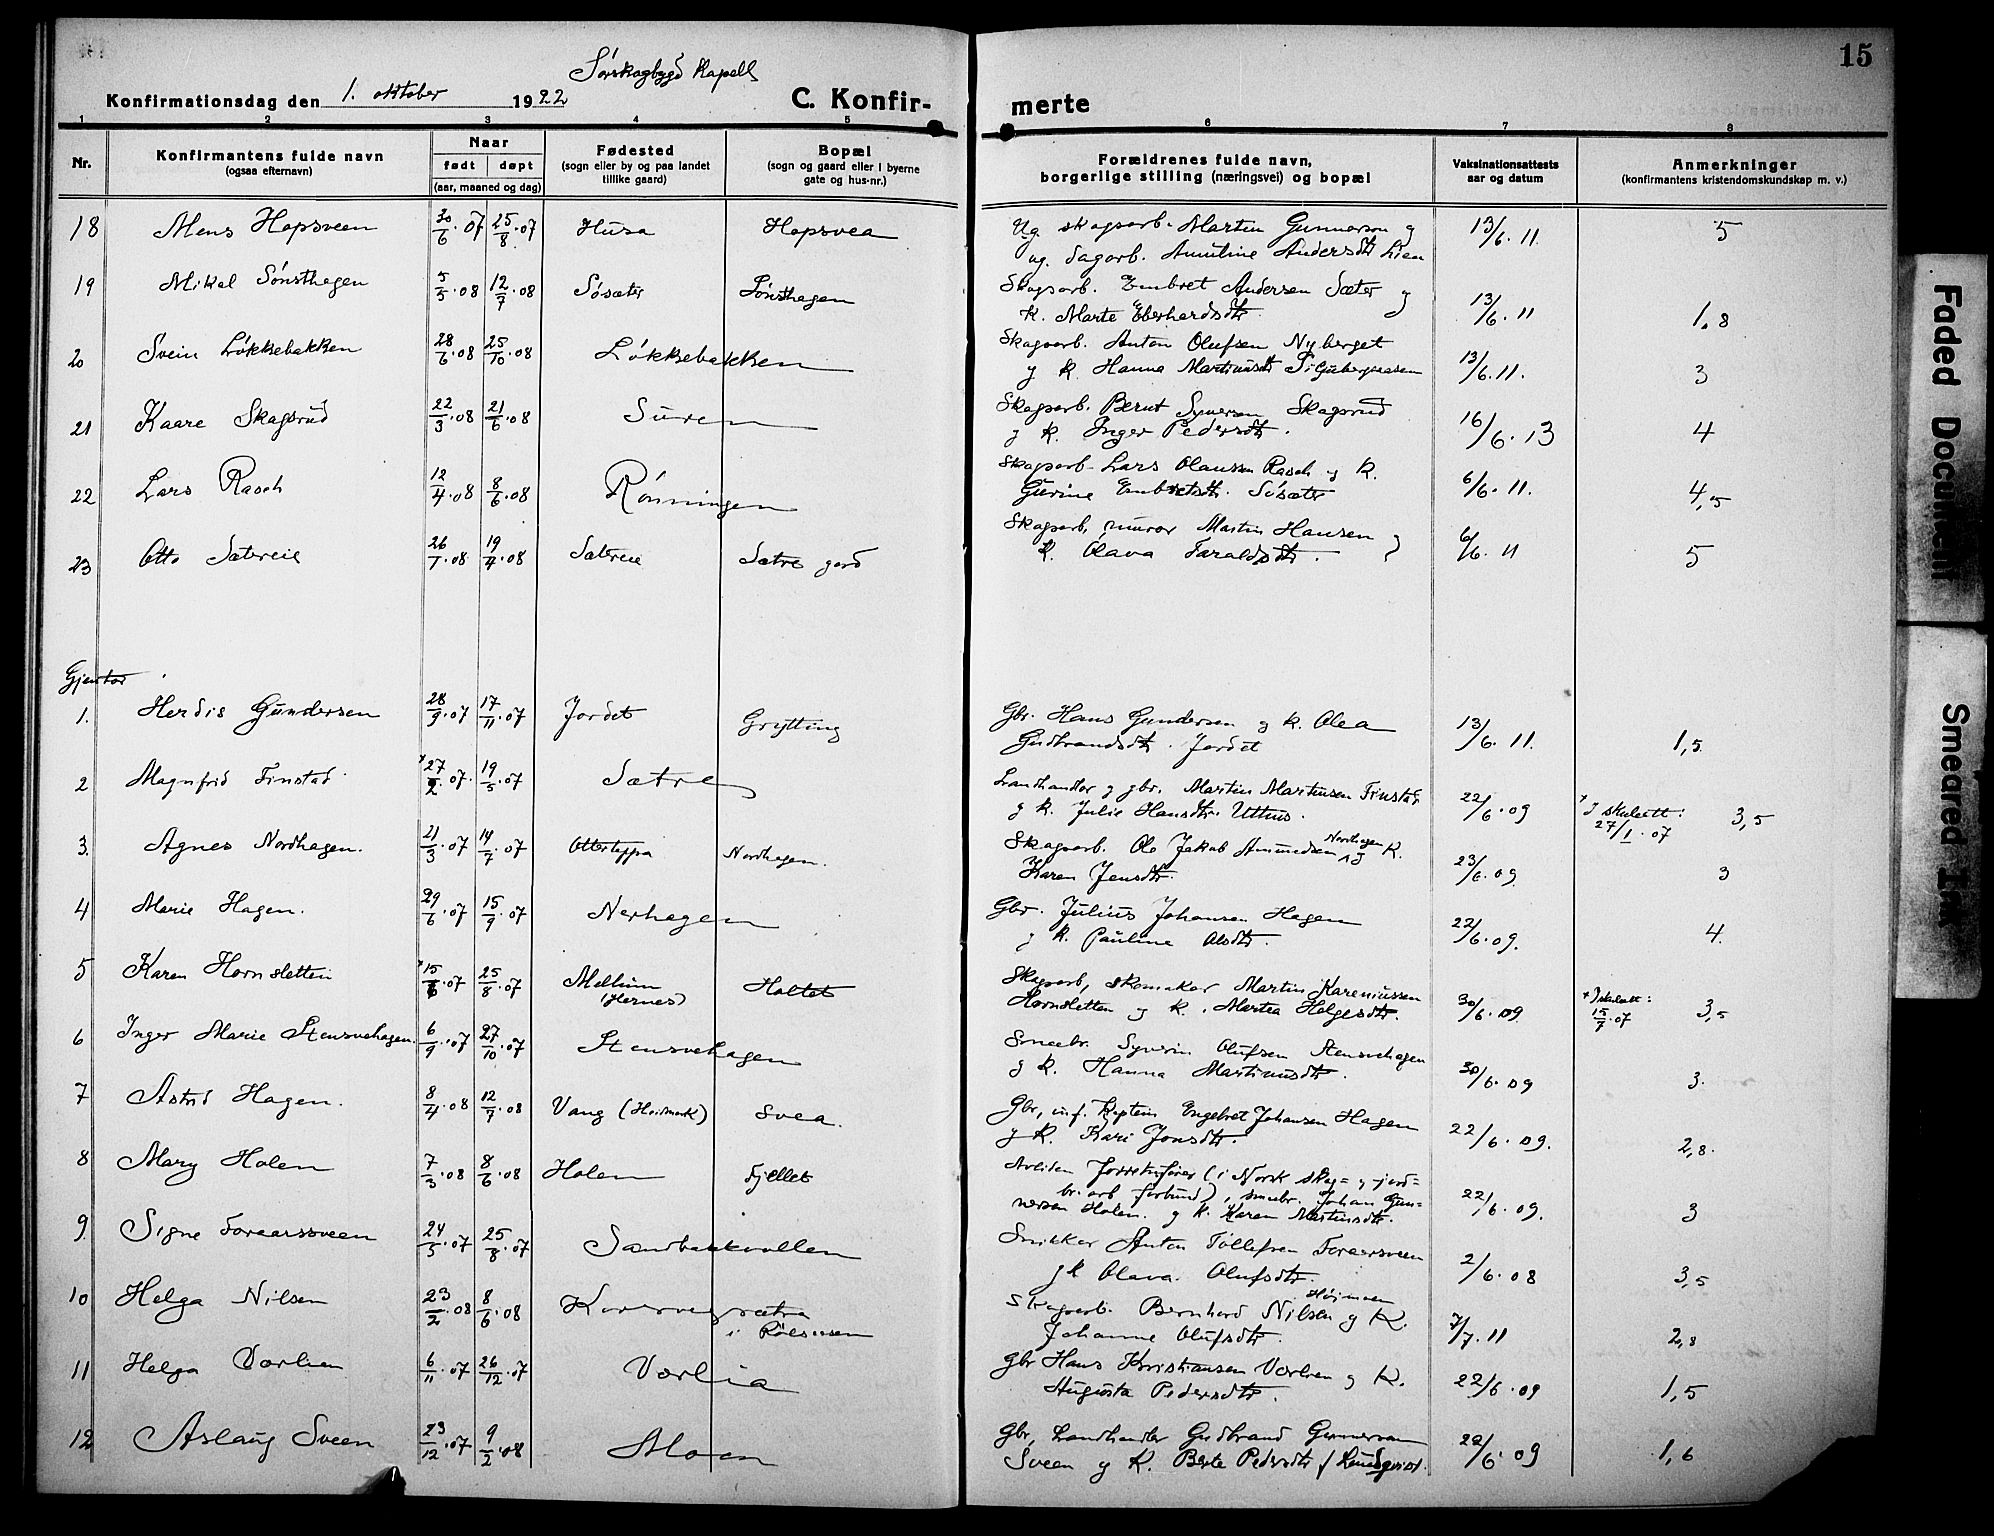 15
Sørskogbygd Kapell
Konfirmationsdag den 1. oktober 1922 C. Konfir-merte
1 2 3 4 5 6 7 8
Nr. Konfirmantens fulde navn (ogsaa efternavn) Naar født døpt (aar, maaned og dag) Fødested (sogn eller by og paa landet tillike gaard) Bopæl (sogn og gaard eller i byerne gate og hus-nr.) Forældrenes fulde navn, borgerlige stilling (næringsvei) og bopæl Vaksinationsattests aar og datum Anmerkninger (konfirmantens kristendomskundskap m. v.)
18 Mens Hopsveen 30/6.07 25/8.07 Husa Hopsvea Ug. skogsarb. Martin Gunnarson og 13/6.11. 5
ug. dagarb. Anuline Andersdtr Lien
19 Mikal Sønsthagen 5/5.08 12/7.08 Søsæter Sønsthagen Skogsarb. Embret Andersen Sæter og
K. Marte Eberhardsdtr. 13/6.11 1,8
20 Svein Løkkebakken 28/6.08 25/10.08 Løkkebakken Skogsarb. Anton Olufsen Nyberget
og K. Hanna Martinusdtr 13/6.11. 3
21 Kaare Skagsrud 22/3.08 21/6.08 Suren Skogsarb. Bernt Syversen Skagsrud
og K. Inger Pedersdtr. 16/6.13 4
22 Lars Rasch 12/4.08 8/6.08 Rønningen Skogsarb. Lars Olaussen Rasch og K.
Gurine Embretsdtr. Søsæter 6/6.11. 4,5
23 Otto Sætereie 26/1.08 19/4.08 Sætreie Sætre gord Skogsarb, murer Martin Hansen og
K. Olava Taraldsdtr. 6/6.11 5
Gjentor
1. Herdis Gundersen 28/9.07 17/11.07 Jordet Grytting Gbr. Hans Gundersen og K. Olea
Gudbrandsdtr. Jordet 13/6.11. 1,5
2 Magnfrid Finstad +27/2.07. 19/5.07 Sætre Landhandler og gbr. Martin Martinsen Finstad
og K. Julie Hansdtr. Uthus. 22/6.09 + I skuleatt: 27/1.07 3,5
3. Agnes Nordhagen. 21/3.07 14/7.07 Otterteppa Nordhagen. Skogsarb. Ole Jakob Amundsen Nordhagen og K.
Karen Jensdtr. 23/6.09. 3
4 Marie Hagen. 29/6.07 15/9.07 Nerhagen Gbr. Julius Johansen Hagen
og K. Pauline Olsdtr. 22/6.09. 4.
5 Karen Hornsletten +15/6.07 25/8.07 Mellum (Hernes) Holtet Skogsarb, skomaker Martin Kareniussen
Hornsletten og K. Martea Helgesdtr. 30/6.09. + I skuleatt: 15/7.07 3,5
6 Inger Marie Stensvehagen. 6/9.07 27/10.07 Stensvehagen Smaabr. Syverin Olufsen Stensvehagen
og K. Hanna Martinusdtr. 30/6.09 3.
7 Astrid Hagen. 8/4.08 12/7.08 Vang (Hedmark) Svea. Gbr, inf. Kaptein Engebret Johansen Hagen
og K. Kari Jonsdtr. 22/6.09. 2,8.
8 Mary Holen 7/3.08 8/6.08 Holen Fjellet Avliden forretnfører (i Norsk skog= og jord=
br. arb forbund), smaabr. Johan Gun=
nersen Holen. og K. Karen Martinsdtr. 22/6.09. 3
9. Signe Foraarssveen 24/5.07 25/8.07 Sandbakkvollen Snikker Anton Tollefsen Foraarsveen
og K Olava. Olufsdtr. 2/6.08 3,5
10 Helga Nilsen 23/2.08 8/6.08 sætra Skogsarb. Bernhard Nilsen Højmoen og K.
Johanne Olufsdtr. 7/7.11 2,8
11 Helga Vorlien 6/11.07 26/12.07 Vorlia Gbr Hans Kristiansen Vorlien og K.
Augusta Pedersdtr. 22/6.09 1,5
12 Aslaug Sveen 23/12.07 9/2.08 Moen Gbr, Landhandler Gudbrand Gunnerson
Sveen og K. Berte Pedersdtr f Lundqvist. 22/6.09 1,6
Faded Document
Smeared Ink